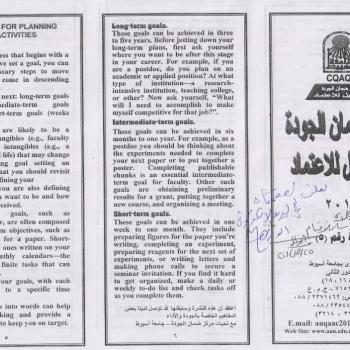 FOR PLANNING
ACTIVITIES
ess that begins with a
e set a goal, you can
ssary steps to move
come in descending
next: long-term goals
mediate-term goals
hort-term goals (weeks
are likely to be a
ngible (e.g., faculty
intangibles (e.g., a
life) that may change
ng goal setting an
t that you should revisit
fining your
you are also defining
want to be and how
received.
goals, such as
, are often composed
m objectives, such as
for a paper. Short-
ones written on your
nthly calendars—the
finite tasks that can
your goals, with each
to a specific time
into words can help
king and provide a
to keep you on target.
Long-term goals.
These goals can be achieved in three
to five years. Before jotting down your
long-term plans, first ask yourself
where you want to be after this stage
in your career. For example, if you
are a postdoc, do you plan on an
academic or applied position? At what
type of institution—a research-
intensive institution, teaching college,
or other? Now ask yourself, "What
will I need to accomplish to make
myself competitive for that job?".
Intermediate-term goals.
These goals can be achieved in six
months to one year. For example, as a
postdoc you should be thinking about
the experiments needed to complete
your next paper or to put together a
poster. Completing publishable
chunks is an essential intermediate-
term goal for faculty. Other such
goals are obtaining preliminary
results for a grant, putting together a
new course, and organizing a meeting.
Short-term goals.
These goals can be achieved in one
week to one month. They include
preparing figures for the paper you're
writing, completing an experiment,
preparing reagents for the next set of
experiments, or writing letters and
making phone calls to secure a
seminar invitation. If you find it hard
to get organized, make a daily or
weekly to-do list and check tasks off
as you complete them.
أعتقد أن هذه النشرة وسابقتها قد توصل لدينا بعض
المفاهيم الخاصة بالجودة والأداء
مع تحيات مركز ضمان الجودة - جامعة أسيوط
٦
CQAQ
ضمان الجودة
مان الجودة
ل للاعتماد
رقم
ى بجامعة أسيوط
E.mail: auqaac201
Web Site: www.aun.edu.